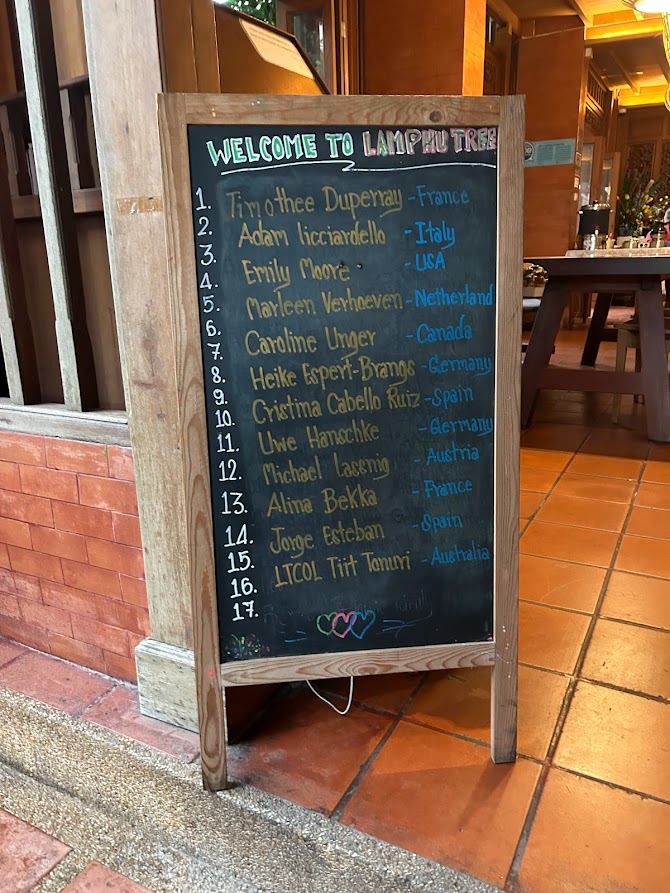 WELCOME TO LAMPHU TREE
1. Timothee Duperray - France
2. Adam licciardello - Italy
3. Emily Moore - USA
4. Marleen Verhoeven - Netherland
5.
6. Caroline Unger - Canada
7. Heike Espert-Brangs - Germany
8. Cristina Cabello Ruiz - Spain
9.
10. Uwe Hanschke - Germany
11. Michael Lassnig - Austria
12. Alina Bekka - France
13. Jorge Esteban - Spain
14. LTCOL Tiit Tonuri - Australia
15.
16.
17.